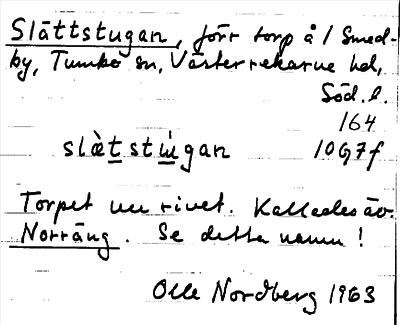 Slåttstugan, förr torp å 1 Smed-
by, Tumbo sn, Västerrekarne hd,
Söd. l.
164
slàtstùgan 10G7f
Torpet nu rivet. Kallades äv.
Norräng. Se detta namn!
Olle Nordberg 1963